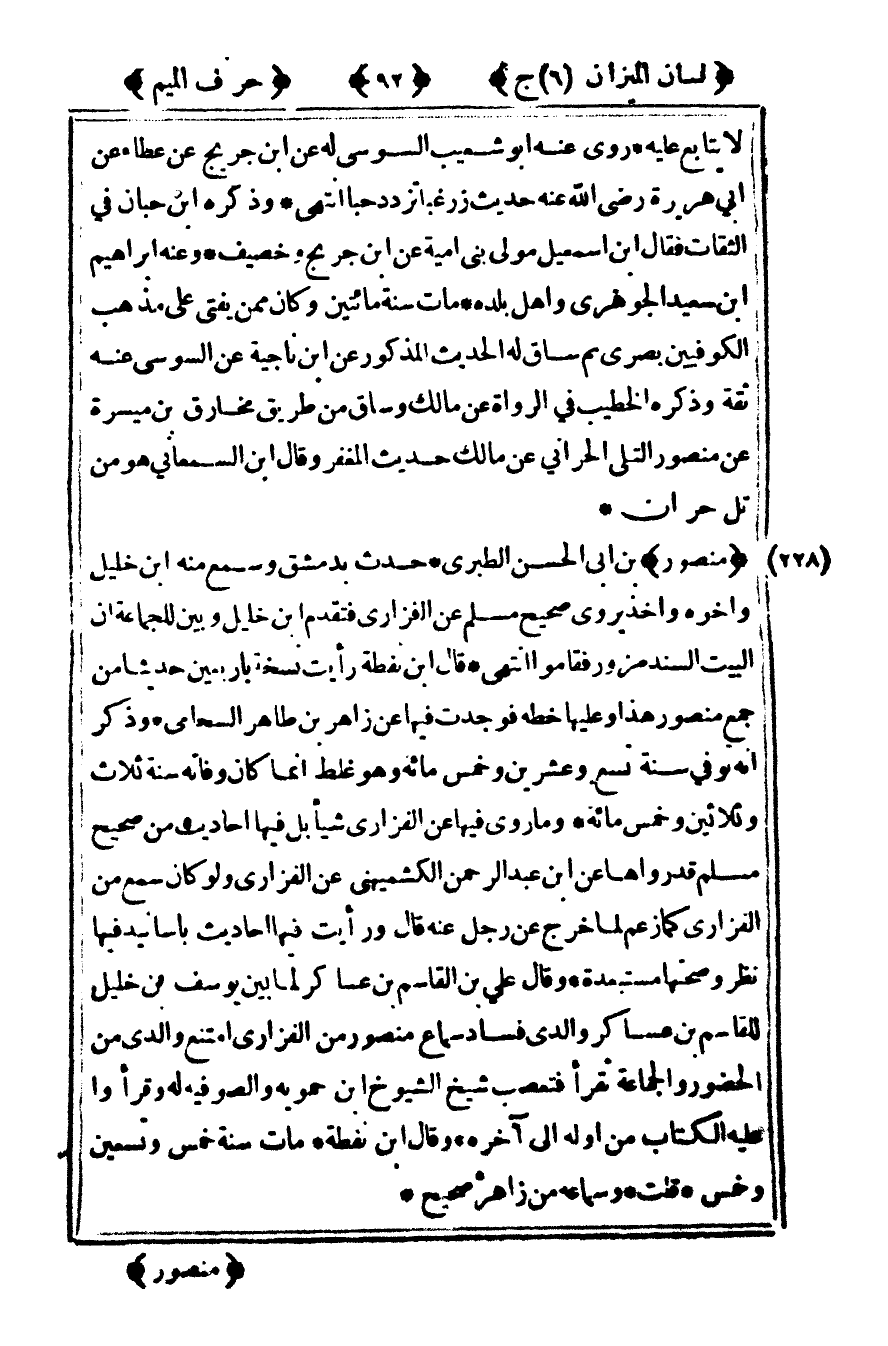 ﴿ لسان الميزان (٦) ج ﴾ ﴿ ٩٢ ﴾ ﴿ حرف الميم ﴾
لا يتابع عليه * روى عنه ابو شعيب السوسى له عن ابن جريج عن عطاء عن
ابي هريرة رضى الله عنه حديث زرغبا تزدد حبا انتهى * وذكره ابن حبان في
الثقات فقال ابن اسمعيل مولى بنى امية عن ابن جريج وخصيف * وعنه ابراهيم
ابن سعيد الجوهرى واهل بلده * مات سنة مائتين وكان ممن يفتى على مذهب
الكوفيين بصرى ثم ساق له الحديث المذكور عن ابن ناجية عن السوسى عنه
ثقة وذكره الخطيب في الرواة عن مالك وساق من طريق مخارق بن ميسرة
عن منصور التلى الحراني عن مالك حديث المغفر وقال ابن السمعاني هو من
تل حران *
(٢٢٨) ﴿ منصور ﴾ بن ابى الحسن الطبرى * حدث بدمشق وسمع منه ابن خليل
واخوه واخذ يروى صحيح مسلم عن الفزارى فتقدم ابن خليل وبين للجماعة ان
البيت السند مزور فقاموا انتهى * قال ابن نفطة رأيت نسخة باربعين حديثا من
جمع منصور هذا وعليها خطه فوجدت فيها عن زاهر بن طاهر السحامى * وذكر
انه توفي سنة تسع وعشرين وخمس مائة وهو غلط انما كان وفاته سنة ثلاث
وثلاثين وخمس مائة * وما روى فيها عن الفزارى شيأ بل فيها احاديث من صحيح
مسلم قد رواها عن ابن عبد الرحمن الكشميهنى عن الفزارى ولو كان سمع من
الفزارى كما زعم لما خرج عن رجل عنه قال ورأيت فيها احاديث باسانيد فيها
نظر وصحتها مستبعدة * وقال علي بن القاسم بن عساكر لما بين يوسف بن خليل
للقاسم بن عساكر والدى فساد سماع منصور من الفزارى امتنع والدى من
الحضور والجماعة تقرأ فتعصب شيخ الشيوخ ابن حمويه والصوفيه له وقرأ وا
عليه الكتاب من اوله الى آخره * وقال ابن نفطة * مات سنة خمس وتسعين
وخمس * قلت * وسماعه من زاهر صحيح *
﴿ منصور ﴾